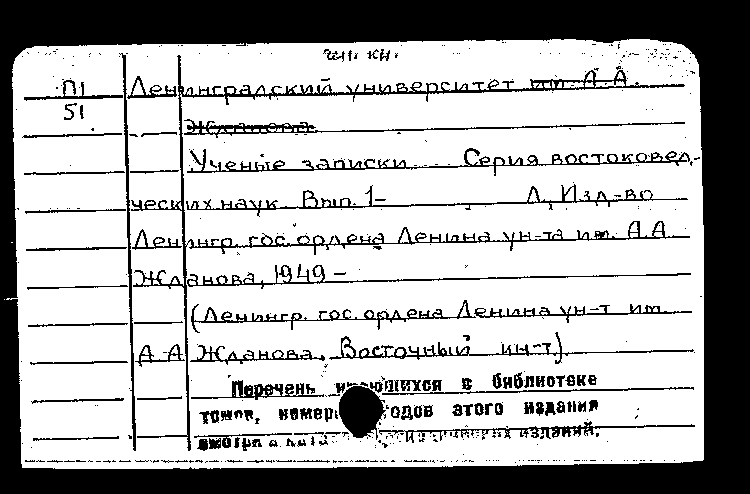 чит. кн.
П1
51
Ленинградский университет им. А.А.
Жданова.
Ученые записки... Серия востоковед-
ческих наук. Вып. 1- Л, Изд-во
Ленингр. гос. ордена Ленина ун-та им. А.А.
Жданова, 1949 -
(Ленингр. гос. ордена Ленина ун-т им.
А.А. Жданова. Восточный ин-т.)
Перечень имеющихся в библиотеке
томов, номеров годов этого издания
смотри в изданий.